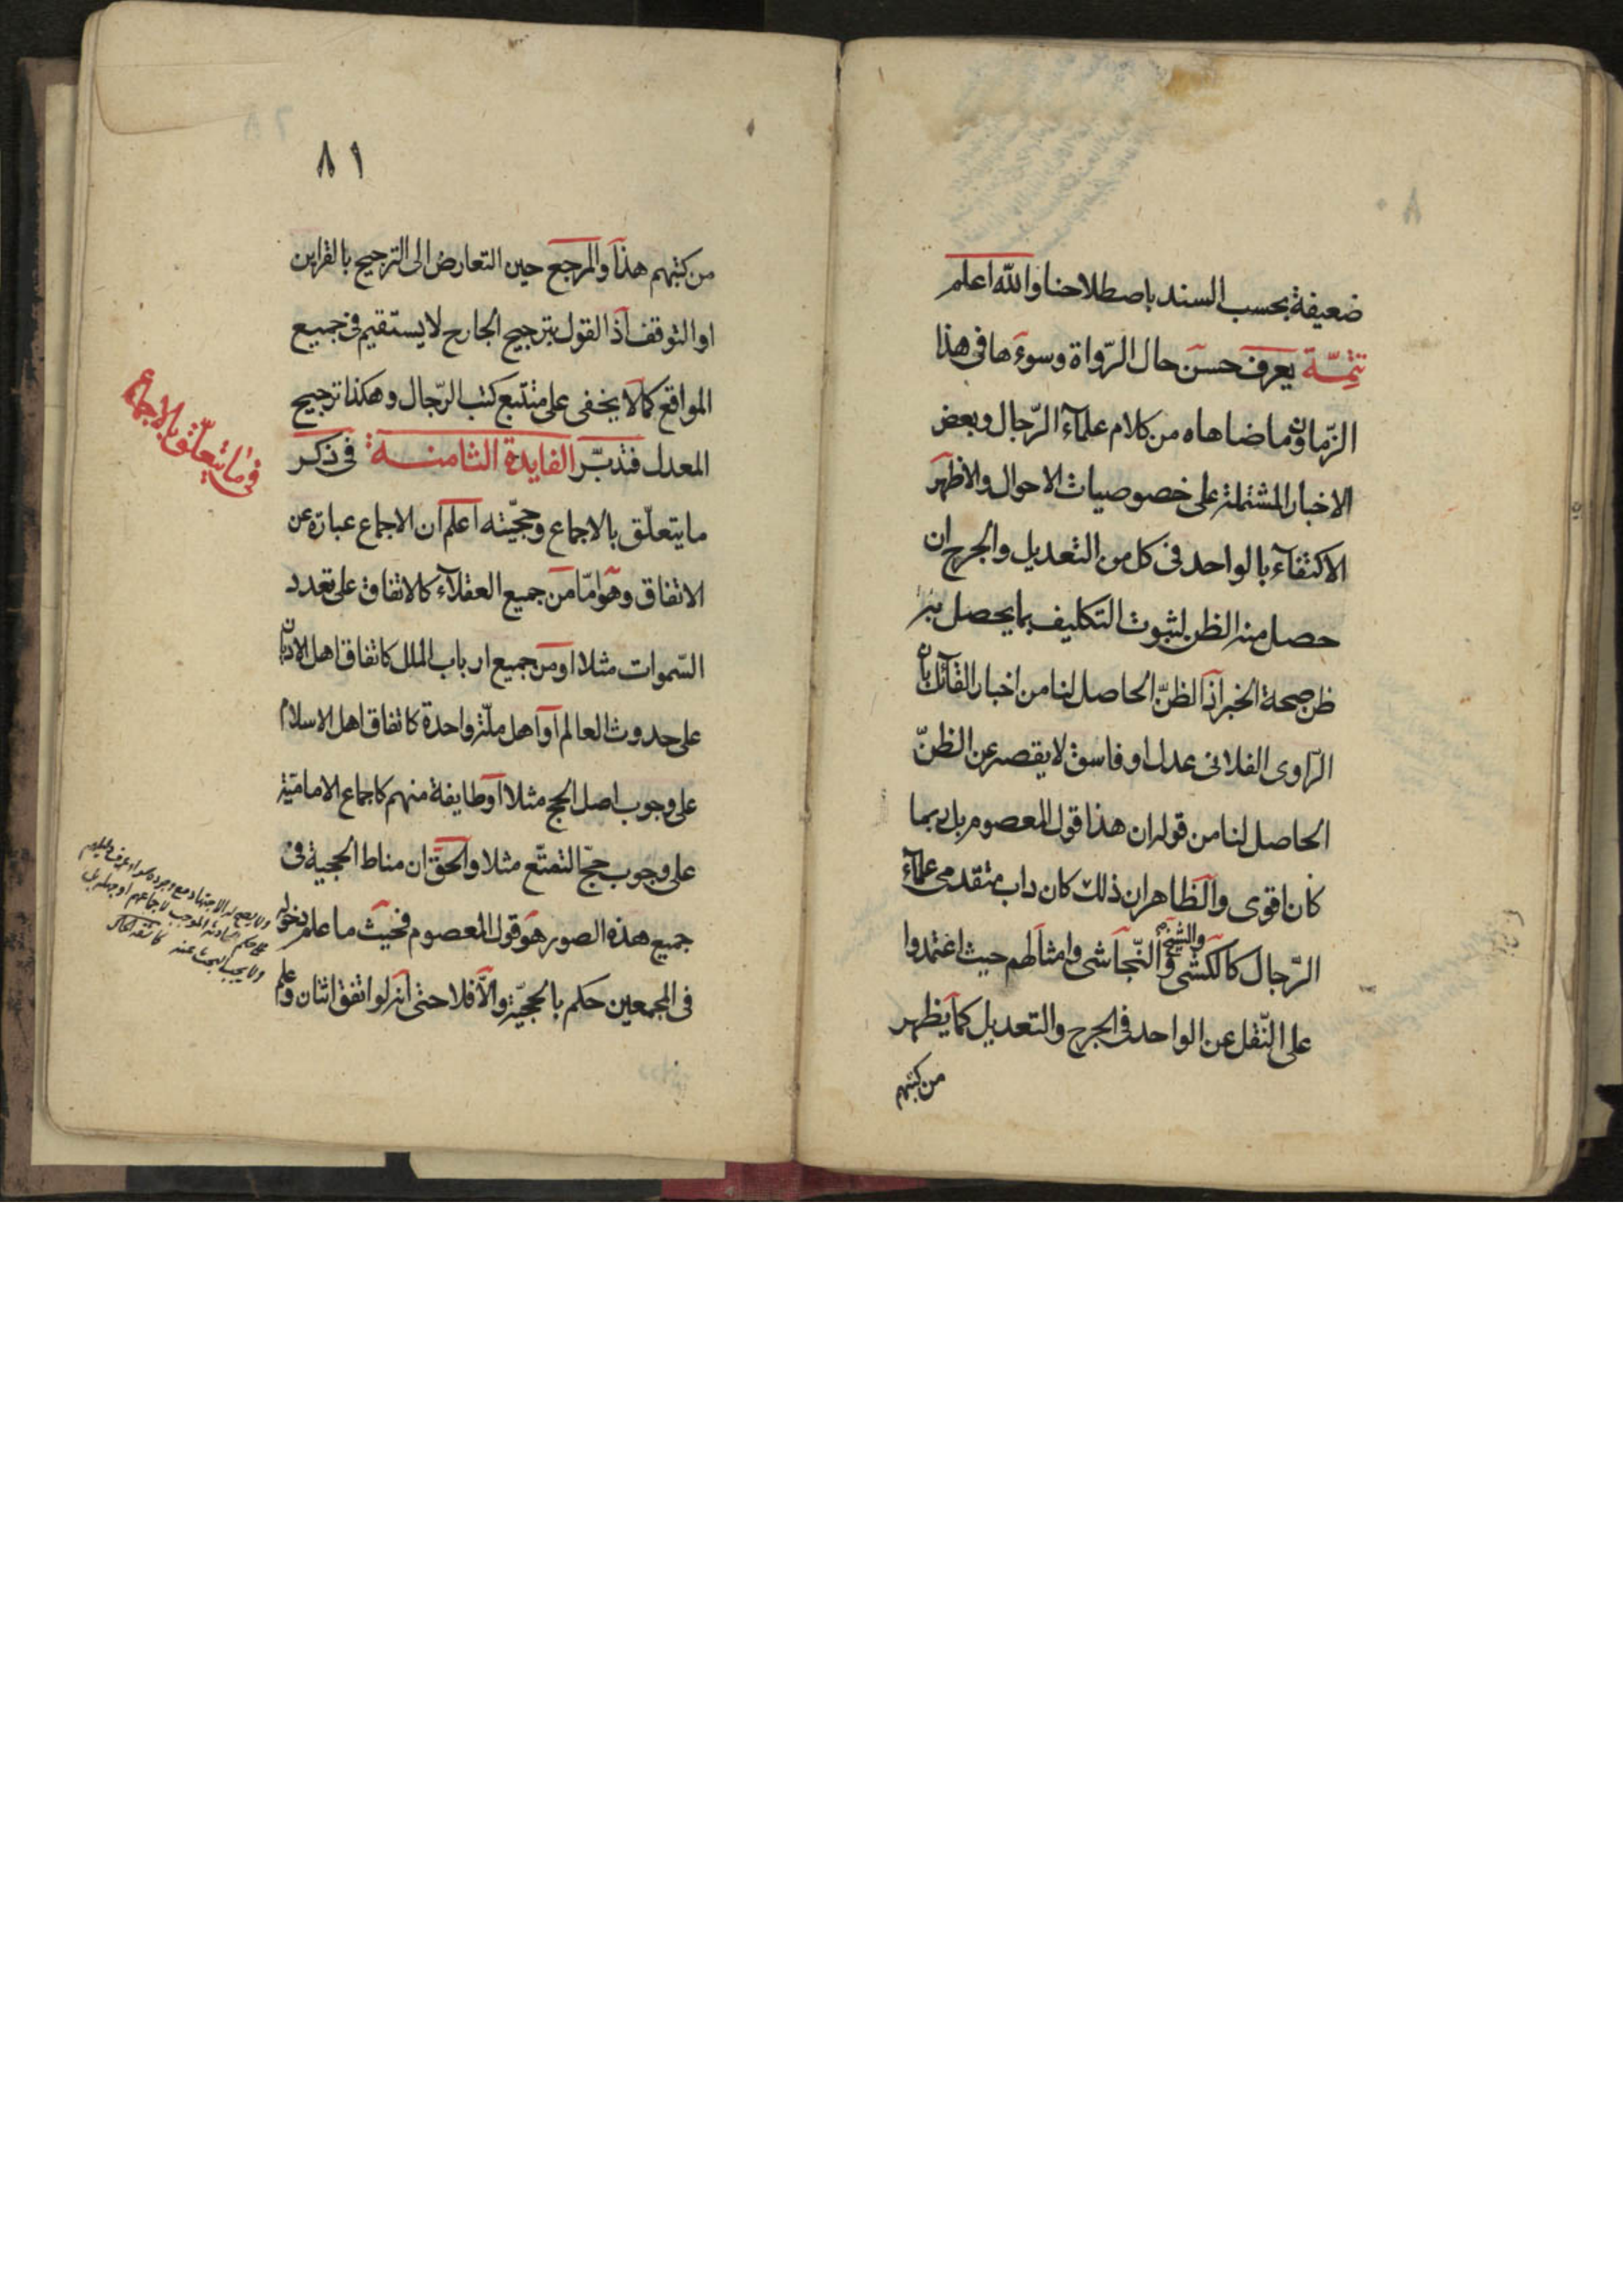 ضعيفة بحسب السند باصطلاحنا والله اعلم
تتمّة يعرف حسن حال الرّواة وسوءها فى هذا
الزّمان وما ضاهاه من كلام علمآء الرّجال وبعض
الاخبار المشتملة على خصوصيات الاحوال والاظهر
الاكتفآء بالواحد فى كل من التعديل والجرح ان
حصل منه الظن لثبوت التكليف بما يحصل به
ظن صحة الخبر اذ الظنّ الحاصل لنا من اخبار القائل بان
الرّاوى الفلانى عدل او فاسق لا يقصر عن الظنّ
الحاصل لنا من قوله ان هذا قول المعصوم بل ربما
كان اقوى والظاهر ان ذلك كان داب متقدمى علمآء
الرّجال كالكشى والشيخ والنّجاشى وامثالهم حيث اعتمدوا
على النّقل عن الواحد فى الجرح والتعديل كما يظهر
من كتبهم
٨١
من كتبهم هذا والمرجع حين التعارض الى الترجيح بالقراين
او التوقف اذ القول بترجيح الجارح لا يستقيم فى جميع
المواقع كما لا يخفى على متتبع كتب الرّجال وهكذا ترجيح
المعدل فتدبّر الفايدة الثامنة فى ذكر
ما يتعلّق بالاجماع وحجّيته اعلم ان الاجماع عبارة عن
الاتفاق وهو امّا من جميع العقلآء كالاتفاق على تعدد
السّموات مثلا او من جميع ارباب الملل كاتفاق اهل الاديان
على حدوث العالم او اهل ملّة واحدة كاتفاق اهل الاسلام
على وجوب اصل الحج مثلا او طايفة منهم كاجماع الاماميّة
على وجوب حجّ التمتّع مثلا والحقّ ان مناط الحجية فى
جميع هذه الصور هو قول المعصوم فحيث ما علم دخوله
فى المجمعين حكم بالحجيّة والّا فلا حتى انه لو اتفق اثنان وعلم
فى ما يتعلّق بالاجماع
ولا يصح له الاجتهاد مع وجوده
لاجماعهم او جهله بل
ولا يجب البحث عنه